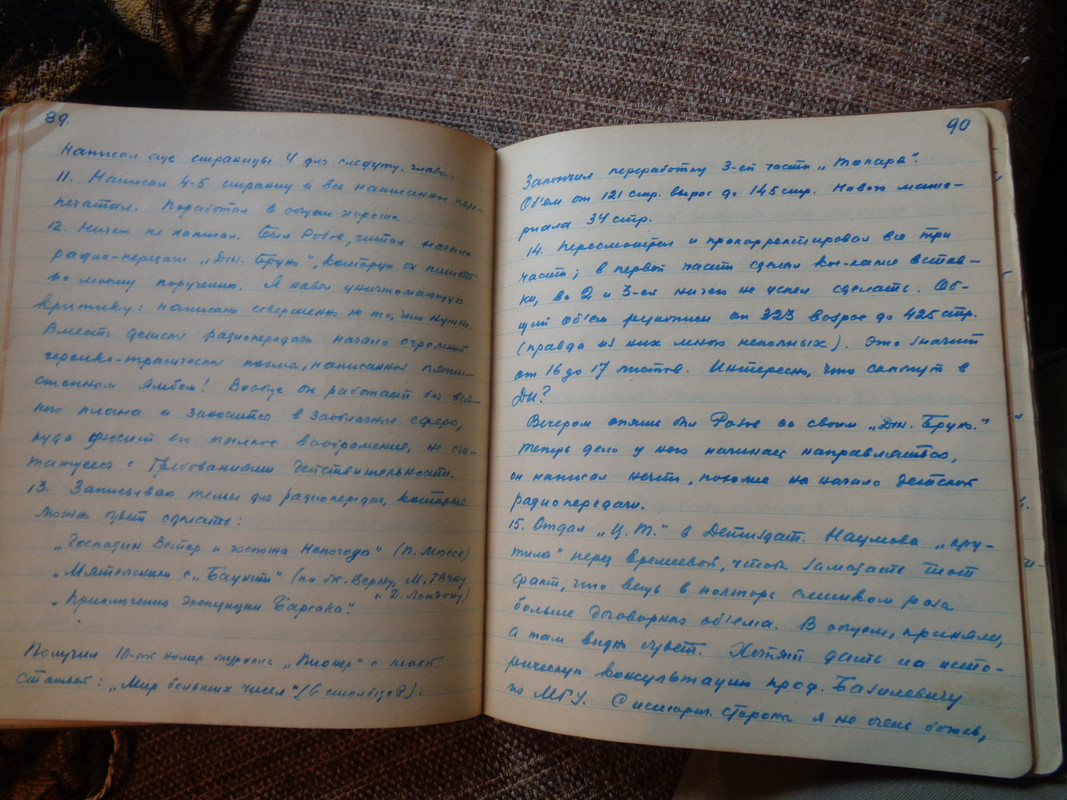 89.
Написал еще страницы 4 для следующ. главы.
11. Написал 4-5 страниц и все написанное пере-
печатал. Поработал в общем хорошо.
12. Ничего не написал. Был Розов, читал начало
радио-передачи „Дж. Брукс", которую он пишет
по моему поручению. Я навел уничтожающую
критику: написано совершенно не то, что нужно.
Вместо детской радиопередачи начало огромной
героико-трагической поэмы, написанной пяти-
стопным ямбом! Вообще он работает без вся-
кого плана и заносится в заоблачные сферы,
куда уносит его пылкое воображение, не счи-
таясь с требованиями действительности.
13. Записываю темы для радиопередач, которые
можно будет сделать:
„Господин Ветер и госпожа Непогода" (П. Мюссе)
„Мятежники с „Баунти" (по Ж. Верну, М. Твэну
и Д. Лондону)
„Приключения экспедиции Барсака".
Получил 10-ый номер журнала „Пионер" с моей
статьей: „Мир больших чисел" (6 столбцов).
90
Закончил переработку 3-ей части
Объем от 121 стр. вырос до 145 стр. Нового мате-
риала 34 стр.
14. Пересмотрел и прокорректировал все три
части; в первой части сделал кое-какие встав-
ки, во 2 и 3-ей ничего не успел сделать. Об-
щий объем рукописи от 323 возрос до 425 стр.
(правда из них много неполных). Это значит
от 16 до 17 листов. Интересно, что скажут в
ДИ?
Вечером опять был Розов со своим „Дж. Брукс."
Теперь дело у него начинает направляться,
он написал нечто, похожее на начало детской
радиопередачи.
15. Отдал „Ц. П." в Детиздат. Наумова „кру-
тила" перед чтоб замазать тот
факт, что вещь в полтора с лишком раза
больше договорного объема. В общем, приняли,
а там видно будет. Хотят дать на исто-
рическую консультацию проф. Базилевичу
из МГУ. С историч. стороны я не очень боюсь,